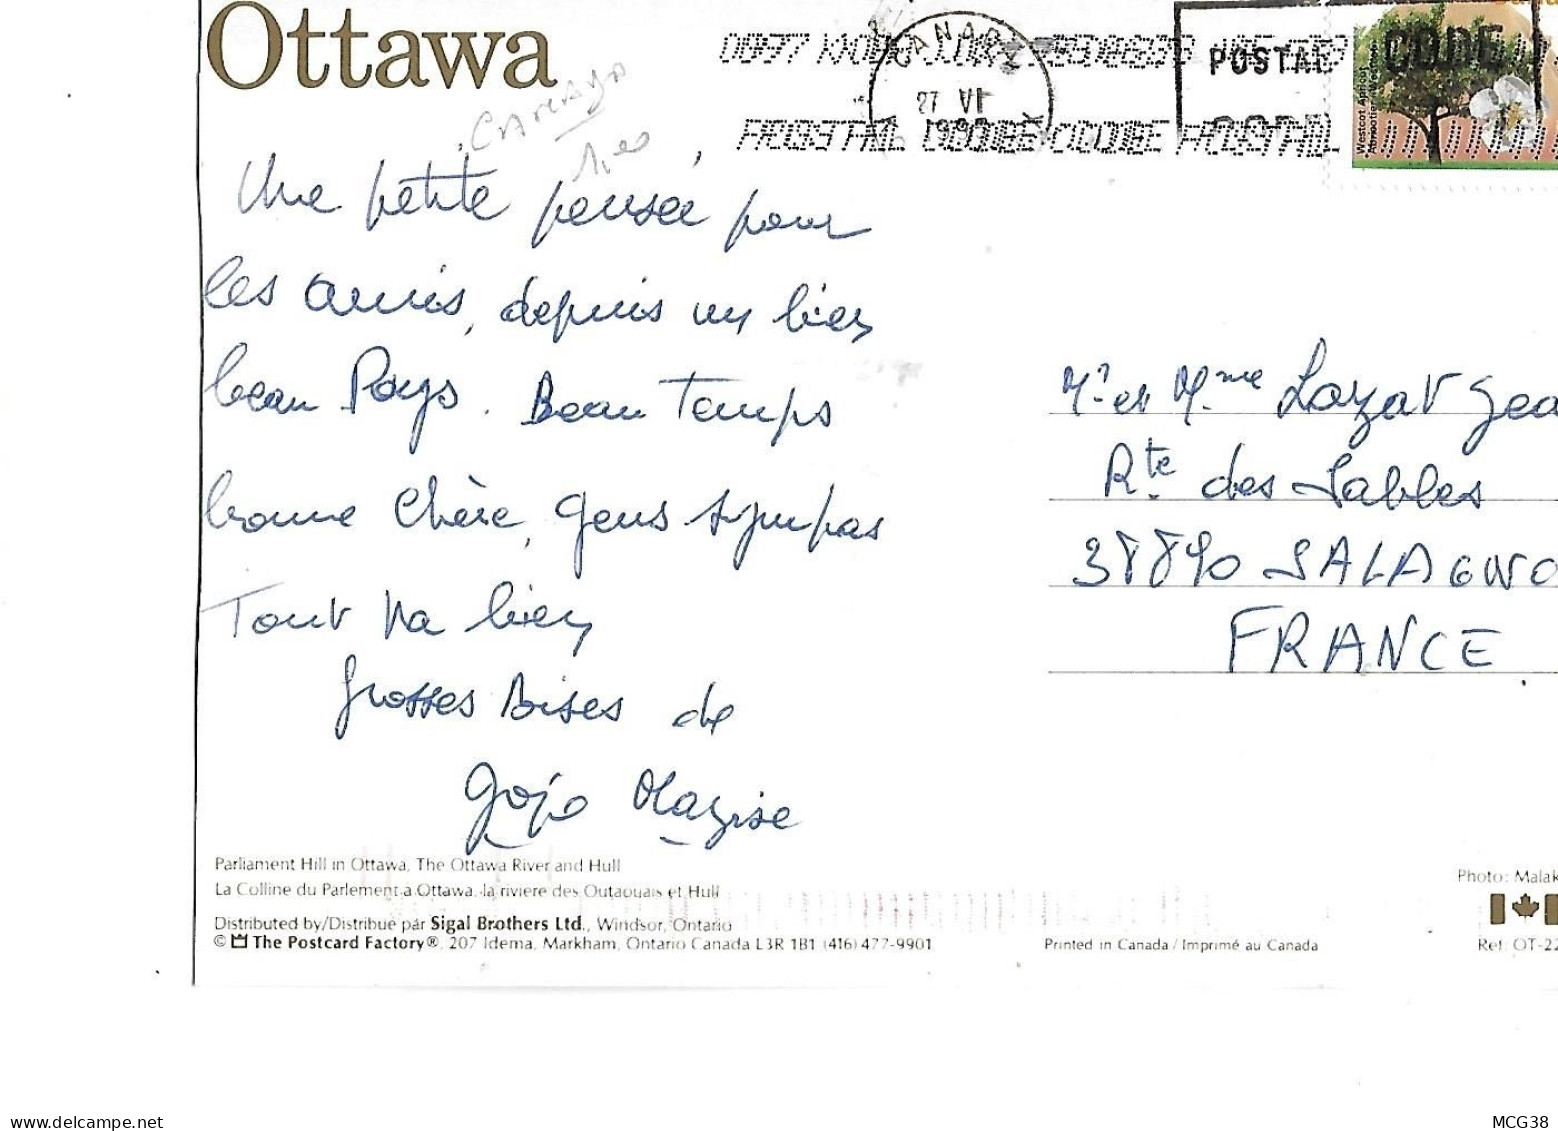 Ottawa
CANADA
27 VI
POSTAL
CODE
Westcot Apricot
Une petite pensée pour
les amis, depuis un bien
beau Pays. Beau Temps
bonne chère, gens sympas
Tout va bien
Grosses Bises de
Gojo
Mr et Mme Lazat Jea
Rte des Sables
38890 SALAGNO
FRANCE
Parliament Hill in Ottawa, The Ottawa River and Hull
La Colline du Parlement a Ottawa, la riviere des Outaouais et Hull
Distributed by/Distribué par Sigal Brothers Ltd., Windsor, Ontario
© The Postcard Factory®, 207 Idema, Markham, Ontario Canada L3R 1B1 (416) 477-9901
Printed in Canada / Imprimé au Canada
Photo: Malak
Ref. OT-22
delcampe.net
MCG38